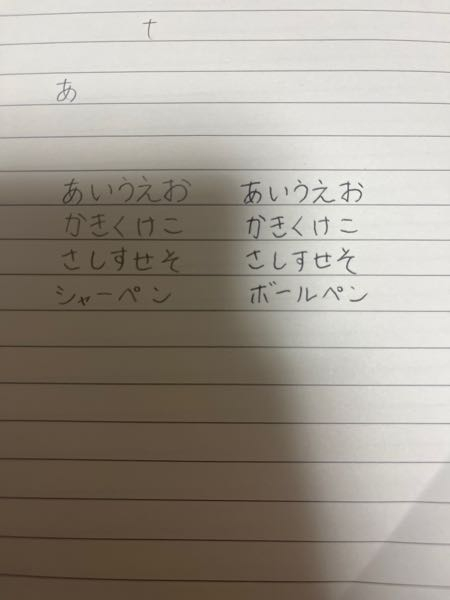 t
あ
あいうえお あいうえお
かきくけこ かきくけこ
さしすせそ さしすせそ
シャーペン ボールペン